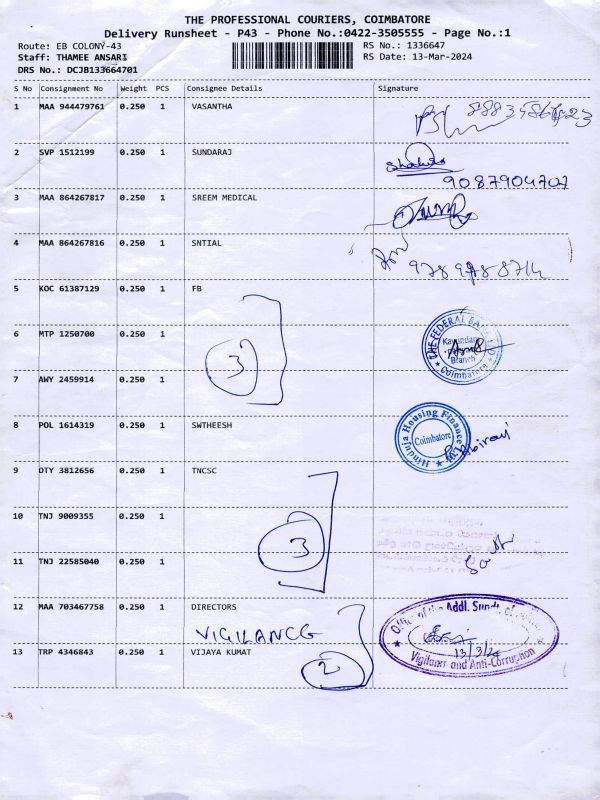 THE PROFESSIONAL COURIERS, COIMBATORE
Delivery Runsheet - P43 - Phone No.:0422-3505555 - Page No.:1
Route: EB COLONY-43 RS No.: 1336647
Staff: THAMEE ANSARI RS Date: 13-Mar-2024
DRS No.: DCJB133664701
S No Consignment No Weight PCS Consignee Details Signature
1 MAA 944479761 0.250 1 VASANTHA
2 SVP 1512199 0.250 1 SUNDARAJ
9087904707
3 MAA 864267817 0.250 1 SREEM MEDICAL
4 MAA 864267816 0.250 1 SNTIAL
5 KOC 61387129 0.250 1 FB
6 MTP 1250700 0.250 1
THE FEDERAL Branch Coimbatore
3
7 AWY 2459914 0.250 1
8 POL 1614319 0.250 1 SWTHEESH
Hinduja Housing Finance Coimbatore
9 OTY 3812656 0.250 1 TNCSC
10 TNJ 9009355 0.250 1
3
11 TNJ 22585040 0.250 1
12 MAA 703467758 0.250 1 DIRECTORS
VIGILANCG
Office of the Addl. Supdt.
13/3/24
Vigilance and Anti-Corruption
13 TRP 4346843 0.250 1 VIJAYA KUMAT
2